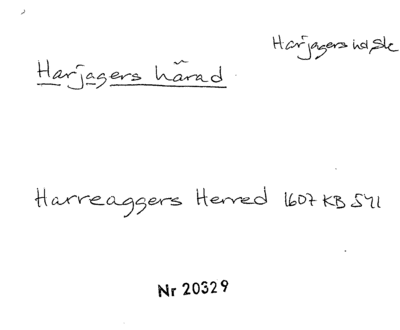 Harjagers hd, Sk
Harjagers härad
Harreaggers Herred 1607 KB 541
Nr 20329